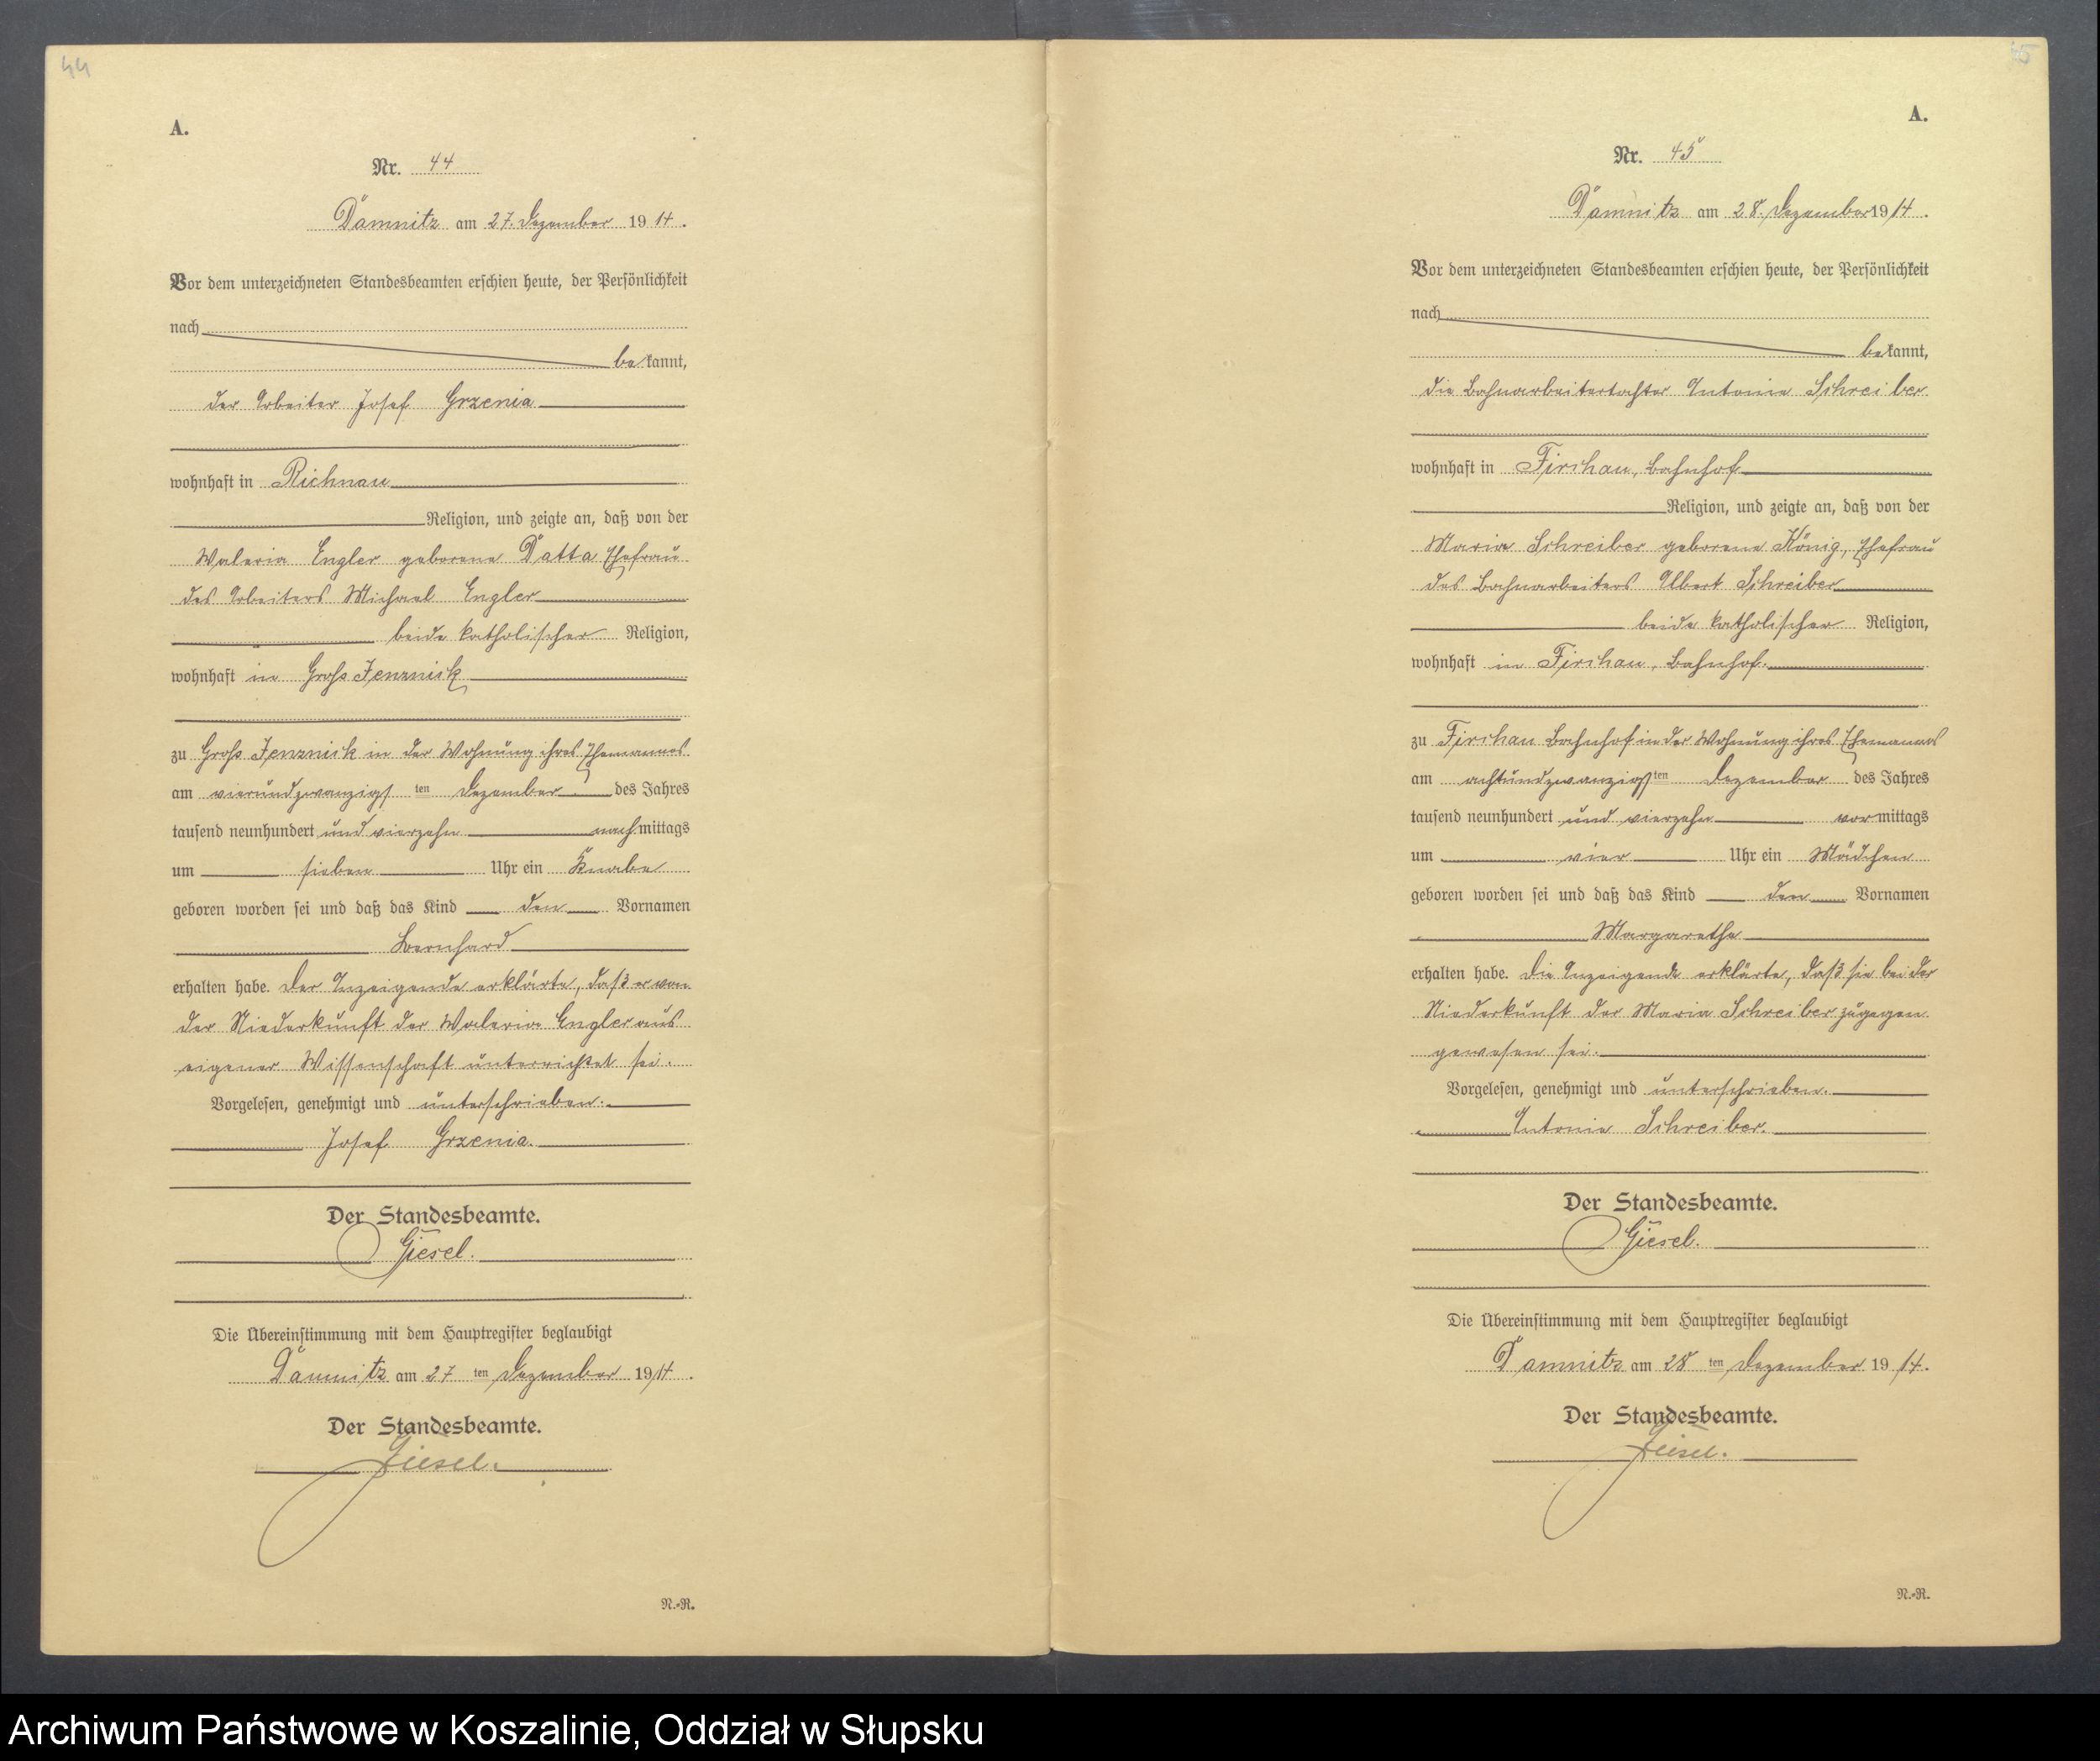 44
A.
Nr. 44
Damnitz am 27. Dezember 1914.
Vor dem unterzeichneten Standesbeamten erschien heute, der Persönlichkeit
nach
bekannt,
der Arbeiter Josef Grzenia
wohnhaft in Richnau
Religion, und zeigte an, daß von der
Waleria Engler geborene Datta Ehefrau
des Arbeiters Michael Engler
beide katholischer Religion,
wohnhaft in Groß Jenznick
zu Groß Jenznick in der Wohnung ihres Ehemannes
am vierundzwanzigsten Dezember des Jahres
tausend neunhundert und vierzehn nachmittags
um sieben Uhr ein Knabe
geboren worden sei und daß das Kind den Vornamen
Bernhard
erhalten habe. Der Anzeigende erklärte, daß er von
der Niederkunft der Waleria Engler aus
eigener Wissenschaft unterrichtet sei.
Vorgelesen, genehmigt und unterschrieben.
Josef Grzenia.
Der Standesbeamte.
Giesel.
Die Übereinstimmung mit dem Hauptregister beglaubigt
Damnitz am 27 ten Dezember 1914.
Der Standesbeamte.
Giesel.
N.-R.
45
A.
Nr. 45
Damnitz am 28. Dezember 1914.
Vor dem unterzeichneten Standesbeamten erschien heute, der Persönlichkeit
nach
bekannt,
die Bahnarbeitertochter Antonie Schreiber
wohnhaft in Firchau, Bahnhof
Religion, und zeigte an, daß von der
Maria Schreiber geborene König, Ehefrau
des Bahnarbeiters Albert Schreiber
beide katholischer Religion,
wohnhaft in Firchau, Bahnhof.
zu Firchau Bahnhof in der Wohnung ihres Ehemannes
am achtundzwanzigsten Dezember des Jahres
tausend neunhundert und vierzehn vormittags
um vier Uhr ein Mädchen
geboren worden sei und daß das Kind den Vornamen
Margarethe
erhalten habe. Die Anzeigende erklärte, daß sie bei der
Niederkunft der Maria Schreiber zugegen
gewesen sei.
Vorgelesen, genehmigt und unterschrieben.
Antonie Schreiber.
Der Standesbeamte.
Giesel.
Die Übereinstimmung mit dem Hauptregister beglaubigt
Damnitz am 28 ten Dezember 1914.
Der Standesbeamte.
Giesel.
N.-R.
Archiwum Państwowe w Koszalinie, Oddział w Słupsku